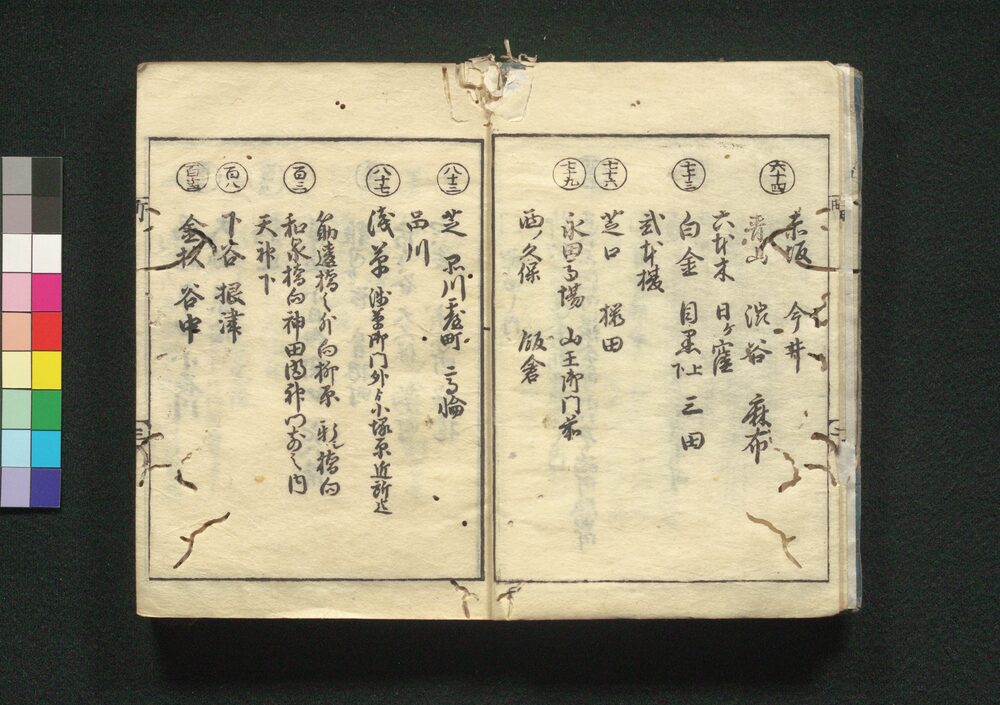 六十四
赤坂 今井
青山 渋谷 麻布
六本木 日ヶ窪
七十三
白金 目黒上下 三田
弐本榎
七十六
芝口 桜田
七十九
永田馬場 山王御門前
西ノ久保 飯倉
八十三
芝 品川台町 高輪
品川
八十七
浅草 浅草御門外ゟ小塚原近所迄
百三
筋違橋之外向柳原 新シ橋向
和泉橋向神田明神門前之内
天神下
百八
下谷 根津
金杦 谷中